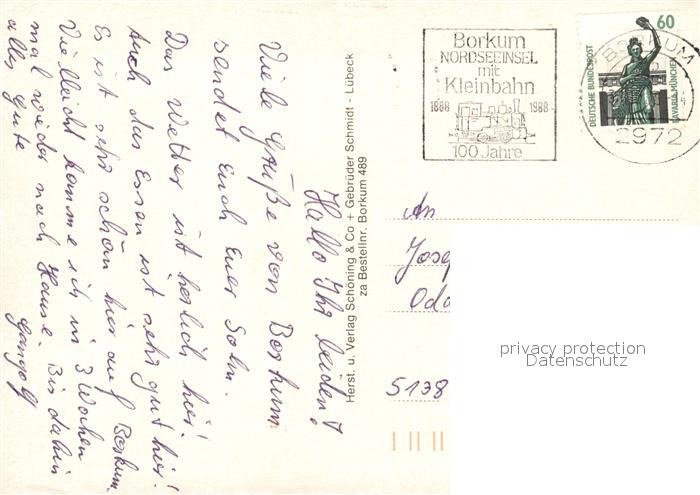 Hallo Ihr beiden!
Viele Grüße von Borkum
sendet Euch Euer Sohn.
Das Wetter ist herlich hier!
Auch das Essen ist sehr gut hier!
Es ist sehr schön hier auf Borkum.
Vielleicht komme ich in 3 Wochen
mal wieder nach Hause. Bis dahin
alles Gute
Herst. u. Verlag Schöning & Co + Gebrüder Schmidt - Lübeck
za Bestellnr. Borkum 489
Borkum
NORDSEEINSEL
mit
Kleinbahn
1888 1988
100 Jahre
60
DEUTSCHE BUNDESPOST
BAVARIA MÜNCHEN
BORKUM
2972
An
Josef
Oda
5138
privacy protection
Datenschutz